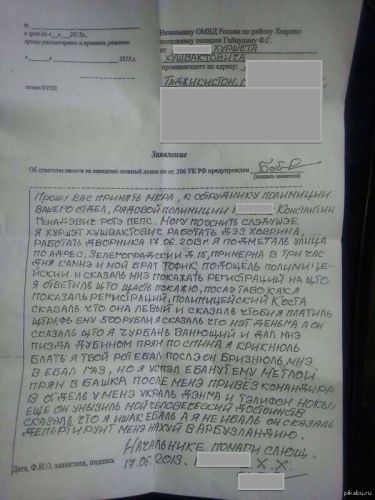 в срок до «__» 2013г.
прошу рассмотреть и принять решение
2013 г.
КУСП
Начальнику ОМВД России по району Ховрино
полковнику полиции Гайнулину Ф.Г.
от
ХУРШЕТА
ХУШВАКТОВИЧА
проживающего по адресу:
ТАДЖИКИСТОН,
Заявление
Об ответственности за заведомо ложный донос по ст. 306 УК РФ предупрежден
(подпись заявителя)
ПРОШУ ВАС ПРИНАТЬ МЕРА, К СОТРУДНИКУ ПОЛИМИЦИИ
ВАШЕГО ОТДЕЛ, РАДОВОЙ ПОЛИМИЦИИ КОНСТАНТИН
МЕНАДЭВИЧ РОТЭ ПЕПС. МОГУ ПОЯСНИТЬ СЛЭДУШЭЕ
Я ХУРШЭТ ХУШВАКТОВИЧ РАБОТАТЬ ДЭЗ. ХОВРИНА,
РАБОТАТЬ ДВОРНИКА 17.06.2013г. Я ПОДМЕТАЛЬ УЛИЦА
ПО АДРЕС, ЗЕЛЕМОГРАДСКИЙ Д.15, ПРИМЕРНА В ТРИ ЧАС
ДНЯ КАМНЭ И МОЙ БРАТ ТОФИК ПОДОШЕЛЬ ПОЛИМИЦЕ-
ЙСКИЙ И СКАЗАЛЬ МНЭ ПОКАЗАТЬ РЕГИСТРАЦИЙ НА ЩТО
Я ОТВЕТИЛЬ ЩТО ЩАСТЬ ПОКАЖЮ, ПОСЛЭ ТАВО КАК Я
ПОКАЗАЛЬ РЕГИСТРАЦИЙ, ПОЛИМИЦЕЙСКИЙ КОСТА
СКАЗАЛЬ ЧТО ОНА ЛЕВЫЙ И СКАЗАЛЬ ЧТОБИ Я ПЛАТИЛЬ
ШТРАФЬ ЕМУ 500 РУБЛИ Я СКАЗАЛЬ ЧТО НЭТ ДЕНЬГА А ОН
СКАЗАЛЬ ЩТО Я ЧУРБАНЬ ВАНЮЮЩИЙ И ДАЛ МНЭ
ПИЗДА ДУБИНОМ ПРЯМ ПО СПИНА Я КРИКНЮЛЬ
БЛАТЬ Я ТВОЙ РОТ ЕБАЛ ПОСЛЭ ОН БРИЗНЮЛЬ МНЭ
В ЕБАЛ ГАЗ, НО Я УСПЭЛ ЕБАНУТ ЕМУ МЕТЛОЙ
ПРЯМ В БАШКА ПОСЛЕ МЕНЭ ПРИВЁЗ КОМАНДИРА
В ОТДЕЛЬ У МЕНЭ УКРАЛЬ ДЭНГА И ТЭЛИФОН НОКЫ
ЕЩЕ ОН УНЫЗИЛЬ МОЙ ЧЕЛОВЕЧЕСКИЙ ДОСТОИНСТВ
СКАЗАЛЬ ЧТО Я ИШАК ЕБАЛЬ А Я НЕ ИБАЛЬ ОН СКАЗАЛЬ
ДЕПАРТИРУЕТ МЕНЯ НАХУЙ В АРБУЗЛАНДИЮ.
НАЧАЛЬНИКЕ ПОМАГИ САЮЩ.
Дата, Ф.И.О. заявителя, подпись 17.06.2013. Х.Х.
pikabu.ru